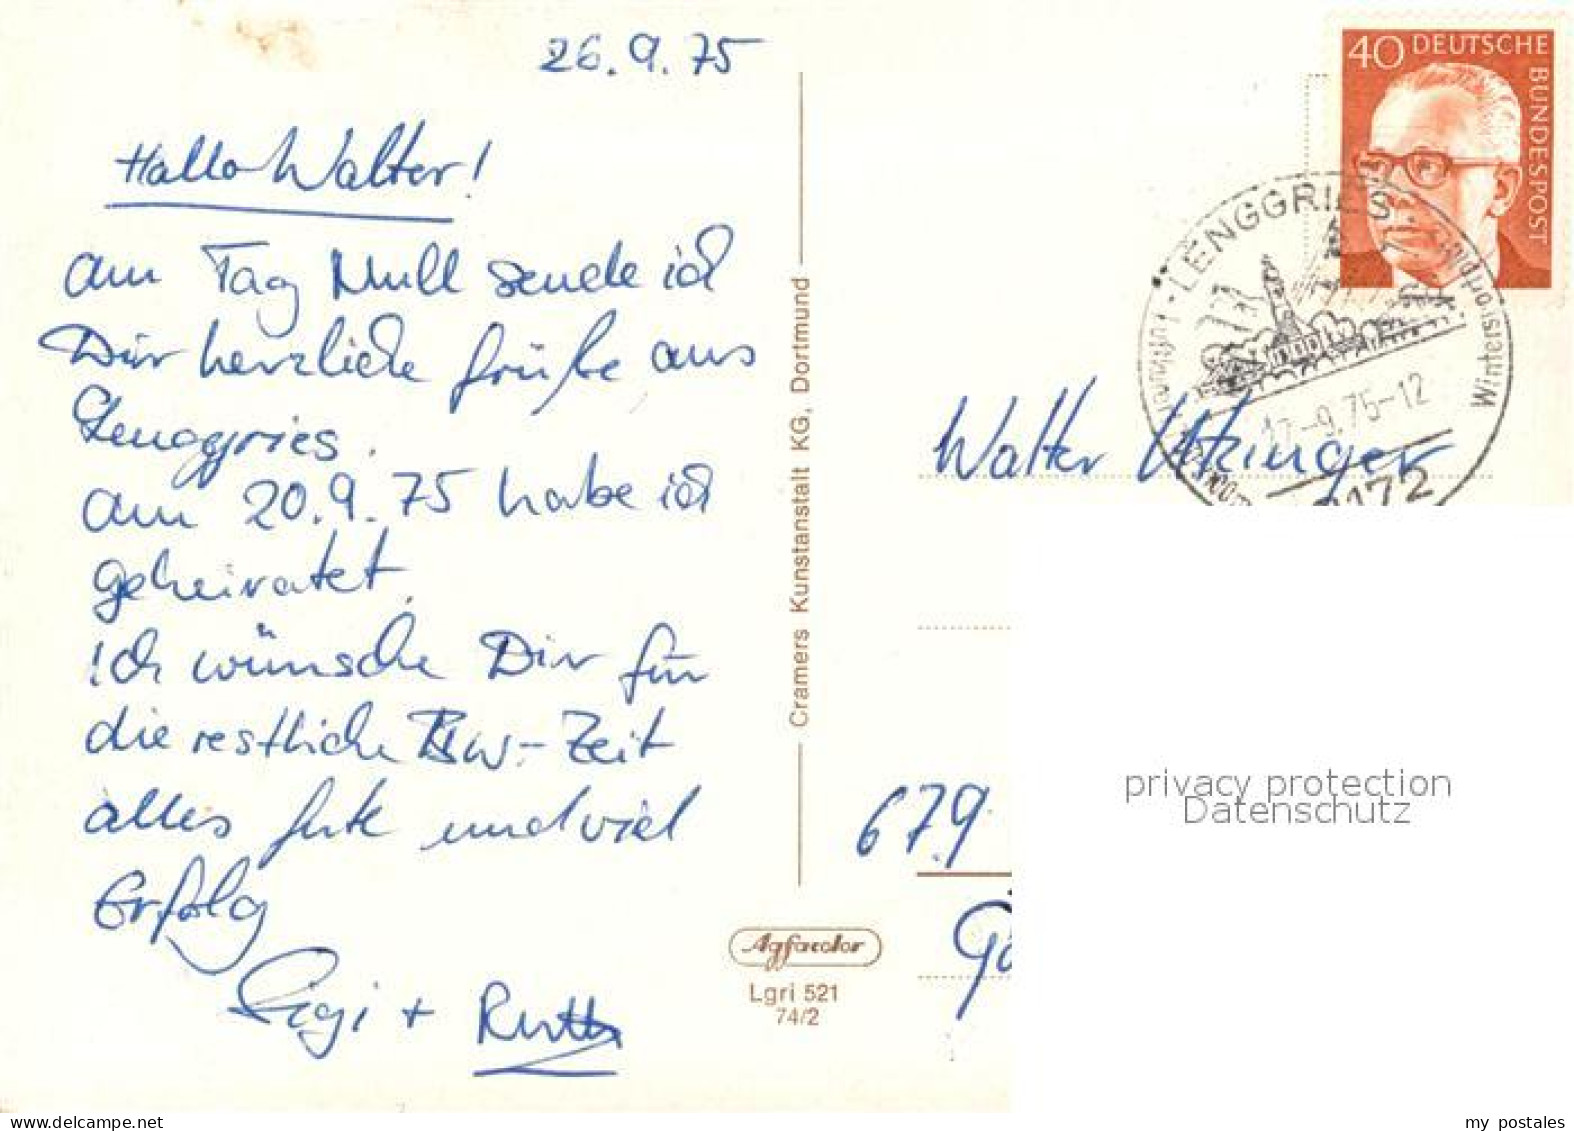 26.9.75
Hallo Walter!
am Tag Null sende ich
Dir herzliche Grüße aus
Lenggries.
am 20.9.75 habe ich
geheiratet.
Ich wünsche Dir für
die restliche BW-Zeit
alles Gute und viel
Erfolg
Sigi + Ruth
Cramers Kunstanstalt KG, Dortmund
Agfacolor
Lgri 521
74/2
40 DEUTSCHE
BUNDESPOST
LENGGRIES
Wintersportplatz
-9.75-12
8172
Walter Utzinger
679
privacy protection
Datenschutz
103240
my postales